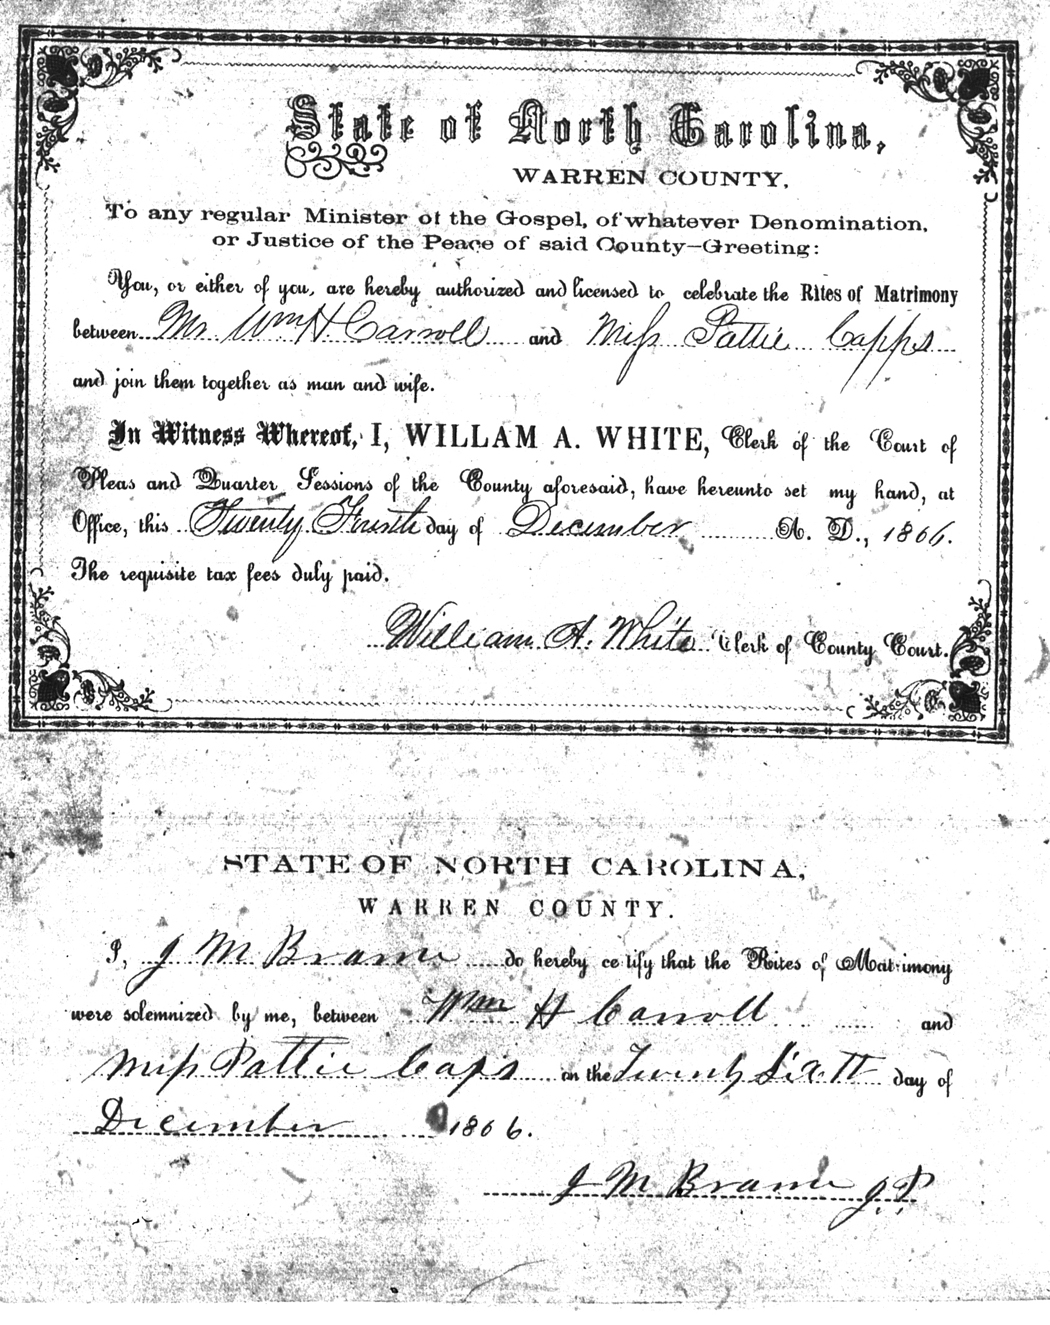 State of North Carolina,
WARREN COUNTY,
To any regular Minister of the Gospel, of whatever Denomination,
or Justice of the Peace of said County—Greeting:
You, or either of you, are hereby authorized and licensed to celebrate the Rites of Matrimony
between Mr. Wm H Carroll and Miss Pattie Capps
and join them together as man and wife.
In Witness Whereof, I, WILLAM A. WHITE, Clerk of the Court of
Pleas and Quarter Sessions of the County aforesaid, have hereunto set my hand, at
Office, this Twenty Fourth day of December A. D., 1866.
The requisite tax fees duly paid.
William A. White Clerk of County Court.
STATE OF NORTH CAROLINA,
WARREN COUNTY.
I, J M Brame do hereby certify that the Rites of Matrimony
were solemnized by me, between Wm H Carroll and
Miss Pattie Caps on the Twenty Sixth day of
December 1866.
J M Brame J.P.